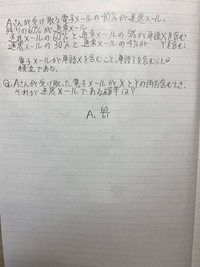 Aさんが受け取る電子メールの40%が迷惑メール、
残りの60%が通常メール
迷惑メールの60%と通常メールの5%が単語Xを含む
迷惑メールの30%と通常メールの4%が Yを含む
電子メールが単語Xを含むこと、単語Yを含むことは
独立である。
Q. Aさんが受け取った電子メールがXとYの両方を含むとき、
それが迷惑メールである確率は?
A, 60/61